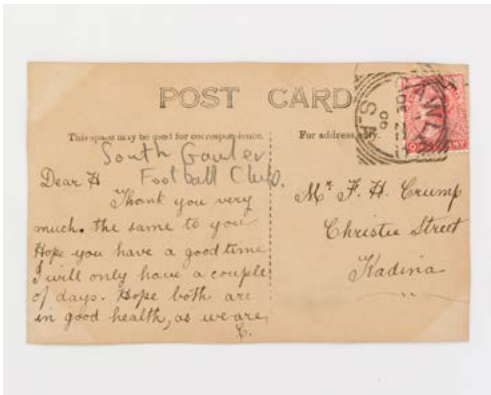 POST CARD
This space may be used for correspondence.
For address only.
South Gawler
Football Club.
Dear H
Thank you very
much. the same to you
Hope you have a good time
I will only have a couple
of days. Hope both are
in good health, as we are,
C.
Mr F. H. Crump
Christie Street
Kadina
S.A